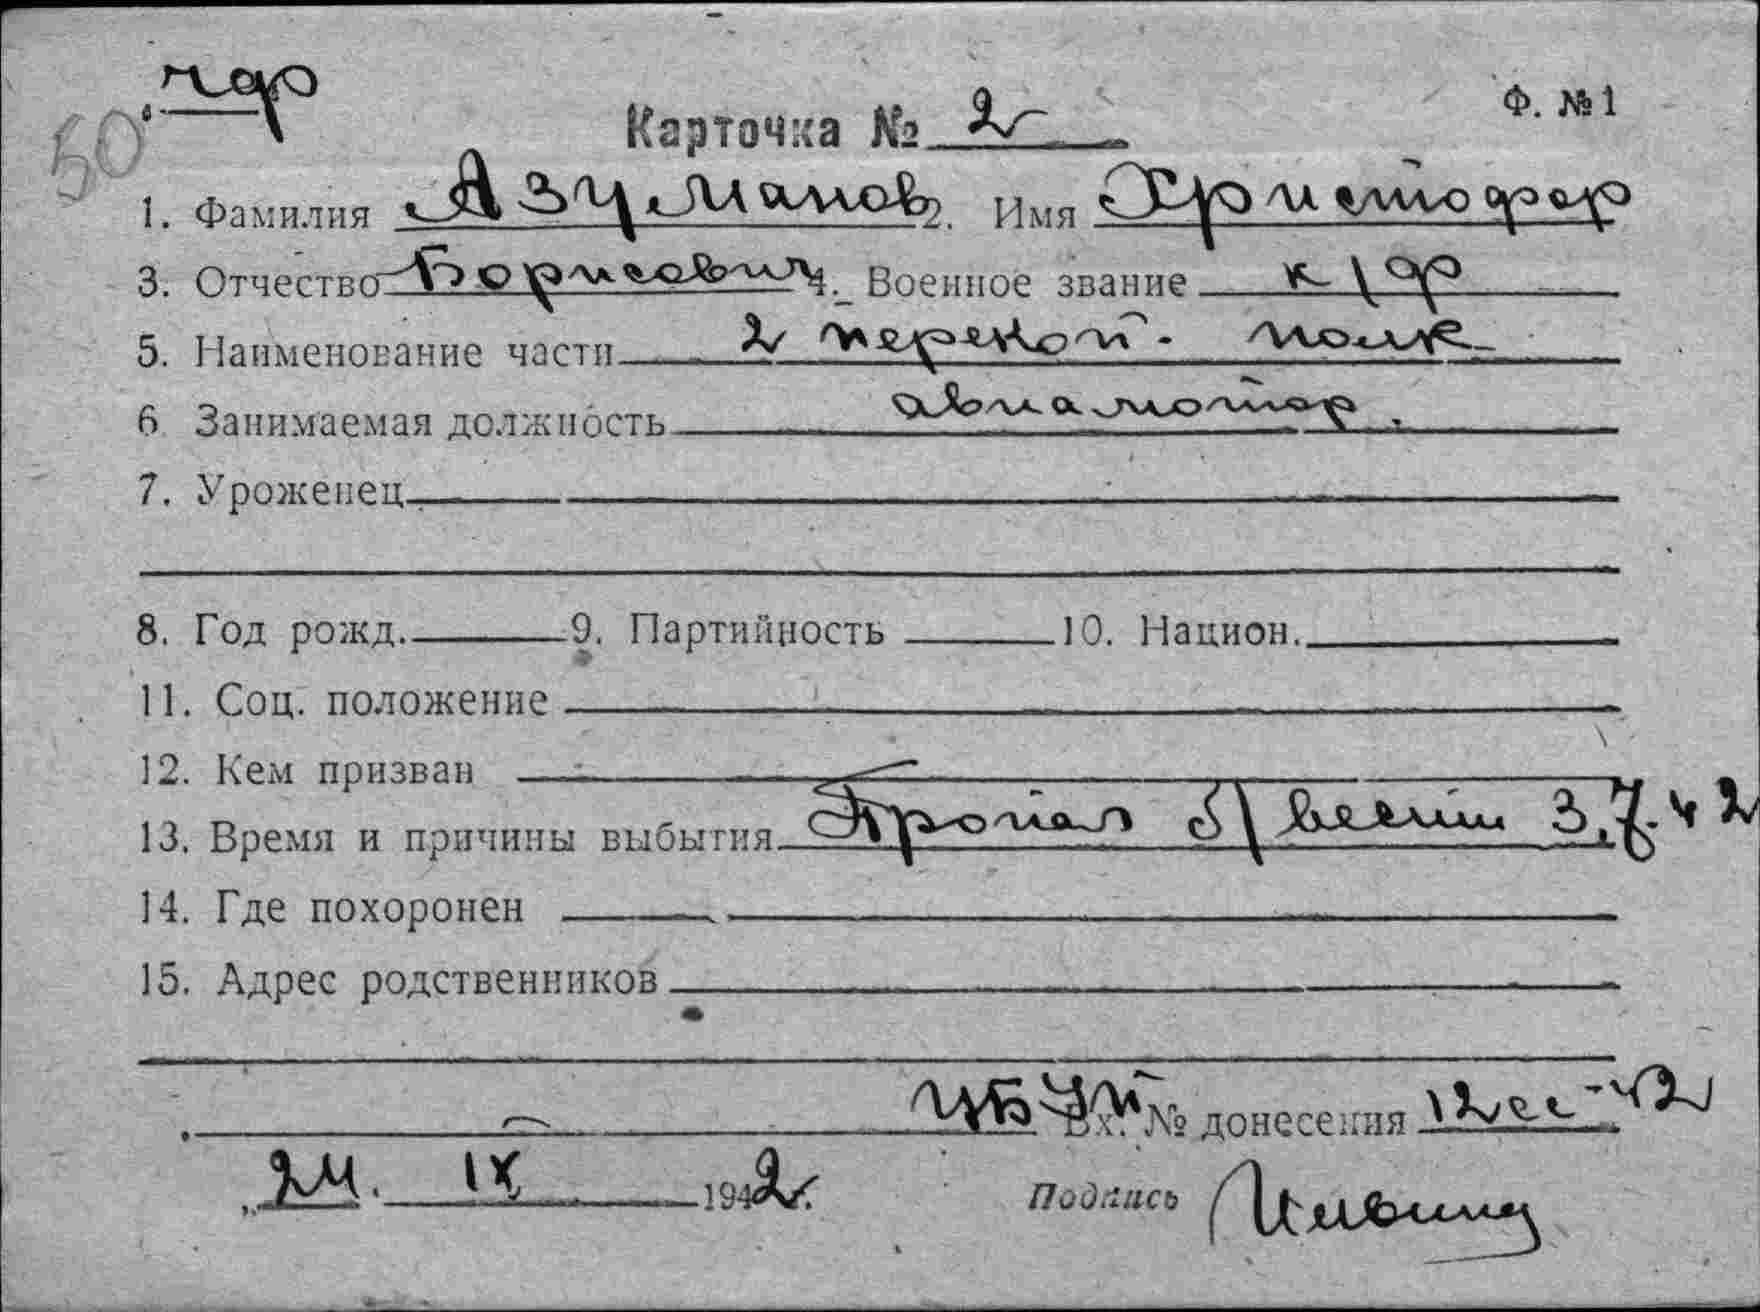 50
Ф. №1
Карточка № 2
1. Фамилия Азуманов 2. Имя Христофор
3. Отчество Борисович 4. Военное звание к/ф
5. Наименование части 2 перегон. полк
6 Занимаемая должность авиамотор.
7. Уроженец
8. Год рожд. 9. Партийность 10. Национ.
11. Соц. положение
12. Кем призван
13. Время и причины выбытия Пропал б/вести 3.7.42
14. Где похоронен
15. Адрес родственников
Вх. № донесения 12сс-42
„24. IX 1942г.
Подпись